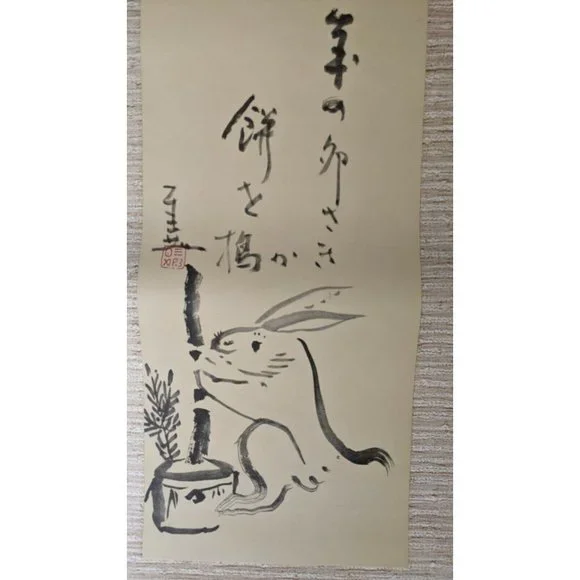 年の卯さき
か
餅を搗